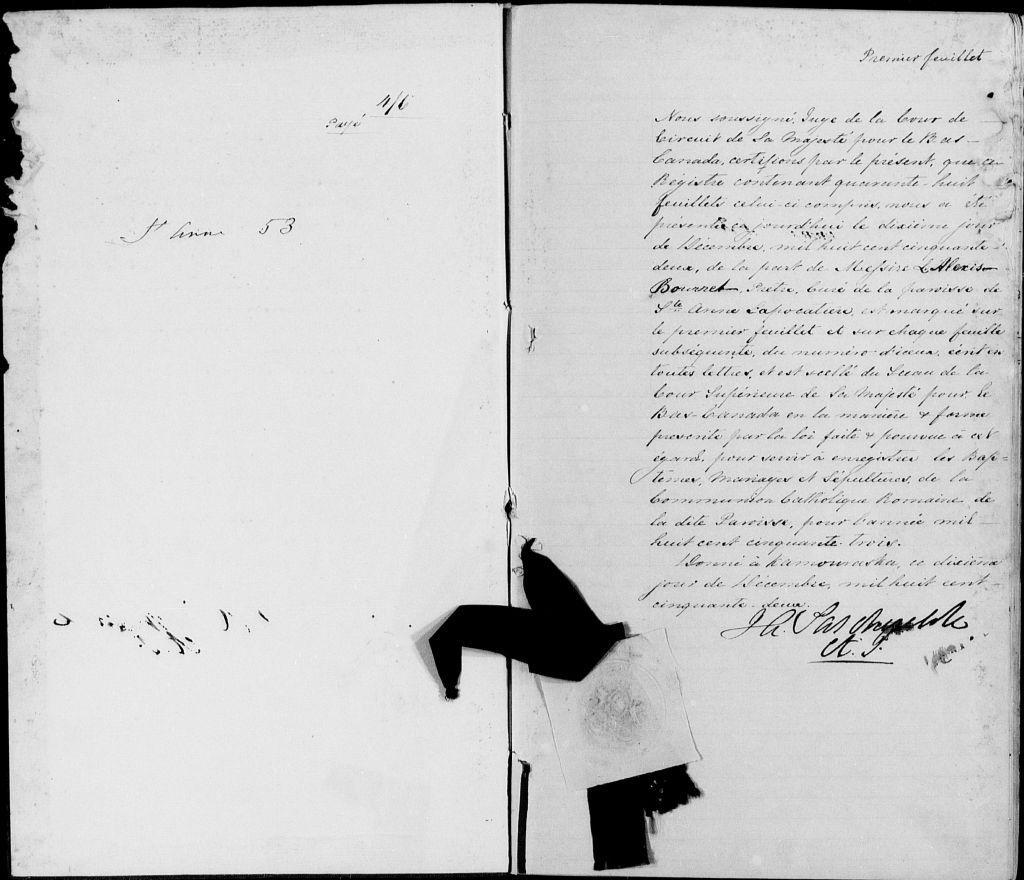 4/6
Payé
Ste Anne 53
Premier feuillet
Nous soussigné, Juge de la Cour de
Circuit de Sa Majesté pour le Bas-
Canada, certifions par le présent, que ce
Régistre contenant quarante-huit
feuillets celui-ci compris, nous a été
présenté ce jourd'hui le dixième jour
de Décembre, mil huit cent cinquante-
deux, de la part de Messire L Alexis
Bourret, Prêtre, Curé de la paroisse de
Ste Anne Lapocatière, est marqué sur
le premier feuillet et sur chaque feuille
subséquente, du numéro d'iceux, écrit en
toutes lettres, et est scellé du Sceau de la
Cour Supérieure de Sa Majesté pour le
Bas-Canada en la manière & forme
prescrite par la loi faite & pourvue à cet
égard, pour servir à enregistrer les Bap-
têmes, Mariages et Sépultures, de la
Communion Catholique Romaine de
la dite Paroisse, pour l'année mil
huit cent cinquante-trois.
Donné à Kamouraska, ce dixième
jour de Décembre, mil huit cent
cinquante-deux.